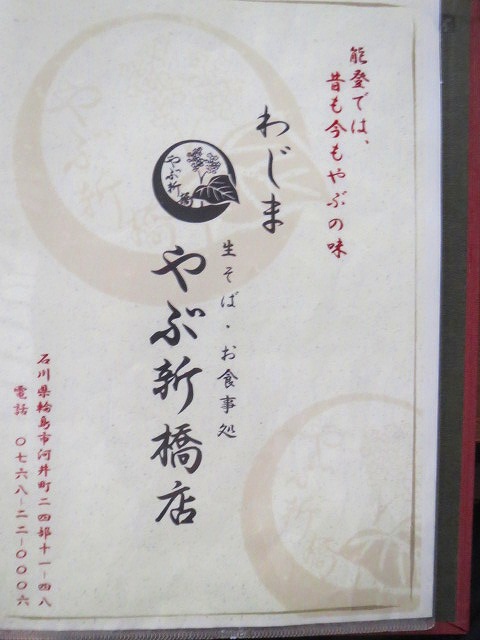 能登では、
昔も今もやぶの味
わじま
生そば・お食事処
やぶ新橋
やぶ新橋店
石川県輪島市河井町二四部十一-四八
電話 〇七六八-二二-〇〇〇六